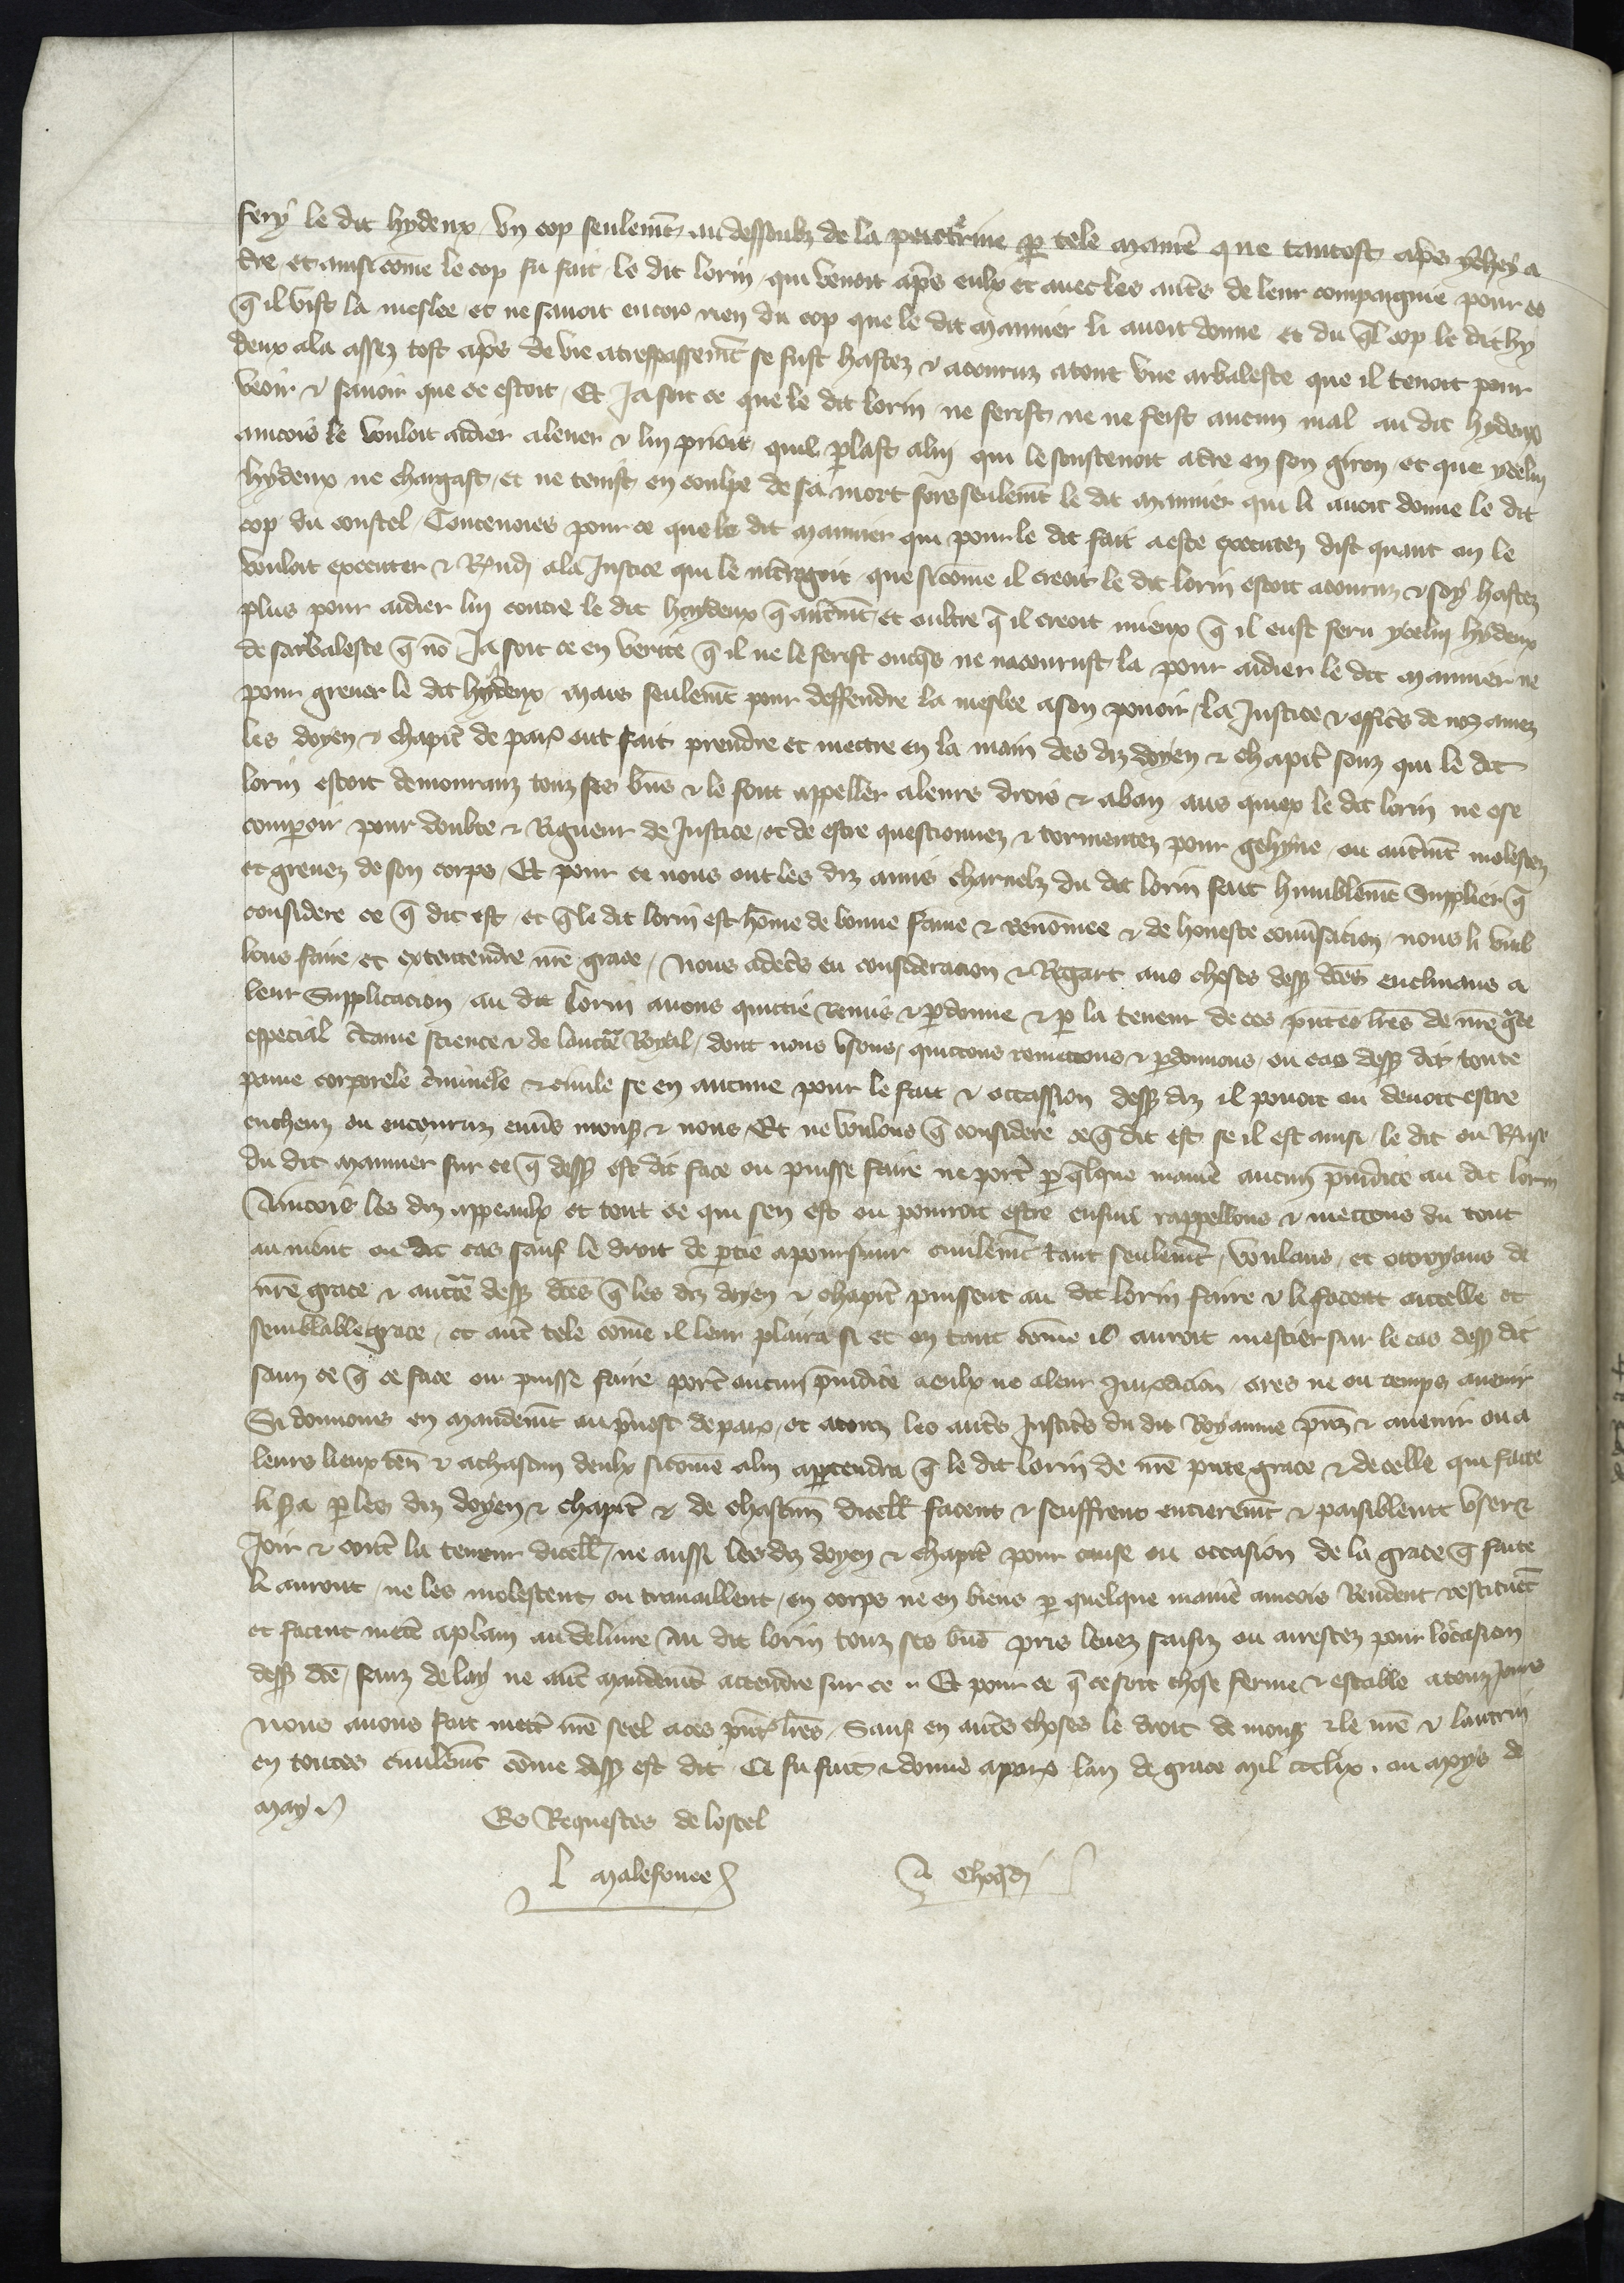 fery le dit hydeux un cop seulemt au dessoubz de la poictrine par tele manie que tantost apres ychey a
tre, et ainsi come le cop fu fait, le dit lorin qui venoit apres eulx et avec les autres de leur compaignie pour ce
q il vist la meslee, et ne savoit encor rien du cop que le dit Mannier li avoit donne, et du ql cop le dit hy
deux ala assez tost apres de vie a trespassemt se fust hastez & acouruz atout une arbaleste que il tenoit pour
veoir & savoir que ce estoit, Et Ja soit ce que le dit lorin ne ferist ne ne feist aucun mal au dit hydeux
ancois le vouloit aidier a lever & lui prioit quil plast a lui qui le soustenoit a tre en son giron, et que ycelui
hydeux ne chargast, et ne tenist en coulpe de sa mort fors seulemt le dit Mannier qui li avoit donne le dit
cop du coustel, Toutevoies pour ce que le dit Mannier qui pour le dit fait a este executez dist quant on le
vouloit executer & a la Justice qui le que si come il creoit le dit lorin estoit acouruz & soy hastez
plus pour aidier lui contre le dit hydeux q autremt, et oultre q il creoit mieux q il eust feru ycelui hydeux
de sarbaleste q no Ja soit ce en verite q il ne le ferist onques ne nacourust la pour aidier le dit Mannier ne
pour grever le dit hydeux, mais seulemt pour deffendre la meslee a son pouoir, la Justice & offices de noz amez
les doyen & chapit de paris ont fait prendre et mettre en la main des diz doyen & chapit souz qui le dit
lorin estoit demouranz touz ses bns & le font appeller a leurs drois & a ban aus quiex le dit lorin ne ose
comparoir pour doubte & Rigueur de Justice, et de estre questionnez & tormentez pour gehyne, ou autremt molestez
et grevez de son corps, Et pour ce nous ont les diz amis charnelz du dit lorin fait humblemt Supplier q
considere ce q dit est, et q le dit lorin est home de bonne fame & renomee & de honneste conversacion, nous li vuil
lons faire et extentendre nre grace, Nous adecs en consideracion & Regart aus choses dess dces enclinans a
leur Supplicacion, au dit lorin avons quictie Remis & pardonne & par la teneur de ces pntes lres de nre gce
especial ctaine science & de lauctte Royal, dont nous usons, quictons remettons & pardonnons, ou cas dess dit toute
paine corporele criminele & civile se en aucune pour le fait & occassion dess diz il pouoit ou devoit estre
encheuz ou encouruz envs monsr & nous, Et ne voulons q considere ce q dit est se il est ainsi, le dit ou
du dit Mannier sur ce q dess est dit face ou puisse faire ne porte par qlque manie aucun preiudice au dit lorin
Aincois les diz appeaulx et tout ce qui sen est ou pourroit estre ensui rappellons & mettons du tout
au nient ou dit cas sauf le droit de ptie a poursuir civilemt tant seulemt, Voulans, et ottroyans de
nre grace & auctte dess dces q les diz doyen & chapit puissent au dit lorin faire & li facent autelle et
semblable grace, et aut tele come il leur plaira si et en tant come il auroit mestier sur le cas dess dit
sanz ce q ce face ou puisse faire porte aucun preiudice a eulx ne a leur Juridicion, ores ne ou temps avenir
Si donnons en mandemt au pvost de paris, et a touz les autres Justices du dit Royaume prs & avenir ou a
leurs lieux ten & a chascun deulx si come a lui appartendra q le dit lorin de nre pnte grace & de celle qui faite
li sa par les diz doyen & chapit & de chascun dicell facent & seuffrent entieremt & paisiblemt user &
Joir & contre la teneur dicell, ne aussi les diz doyen & chapit pour cause ou occasion de la grace q faite
li auront, ne les molestent ou travaillent, en corps ne en biens par quelque manie aincois Rendent restituet
et facent mett a plain au delivre Au dit lorin touz ses bns pris levez saisiz ou arrestez pour loccasion
dess dce, sanz delay ne aut mandemt attendre sur ce Et pour ce q ce soit chose ferme & estable a touz Jours
Nous avons fait mett nre seel a ces pnt lres, Sauf en autres choses le droit de monsr & le nre & lautrui
en toutes civilemt come dess est dit, Ce fu fait & donne a paris lan de grace mil ccclix, ou moys de
May
Es Requestes de lostel
l Malefonce